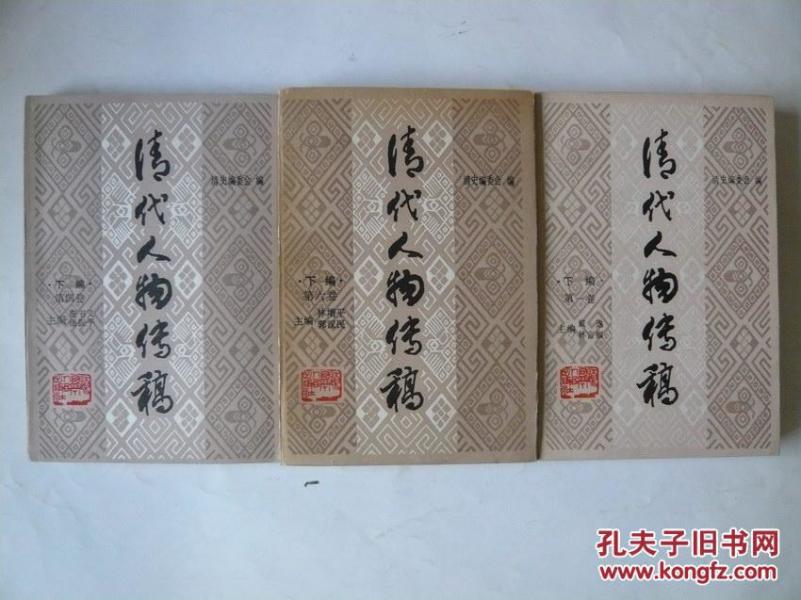 清代人物传稿
清史编委会 编
·下编·
第四卷
主编
清代人物传稿
清史编委会 编
·下编·
第六卷
主编 林增平
郭汉民
清代人物传稿
清史编委会 编
·下编·
第一卷
主编
孔夫子旧书网
www.kongfz.com